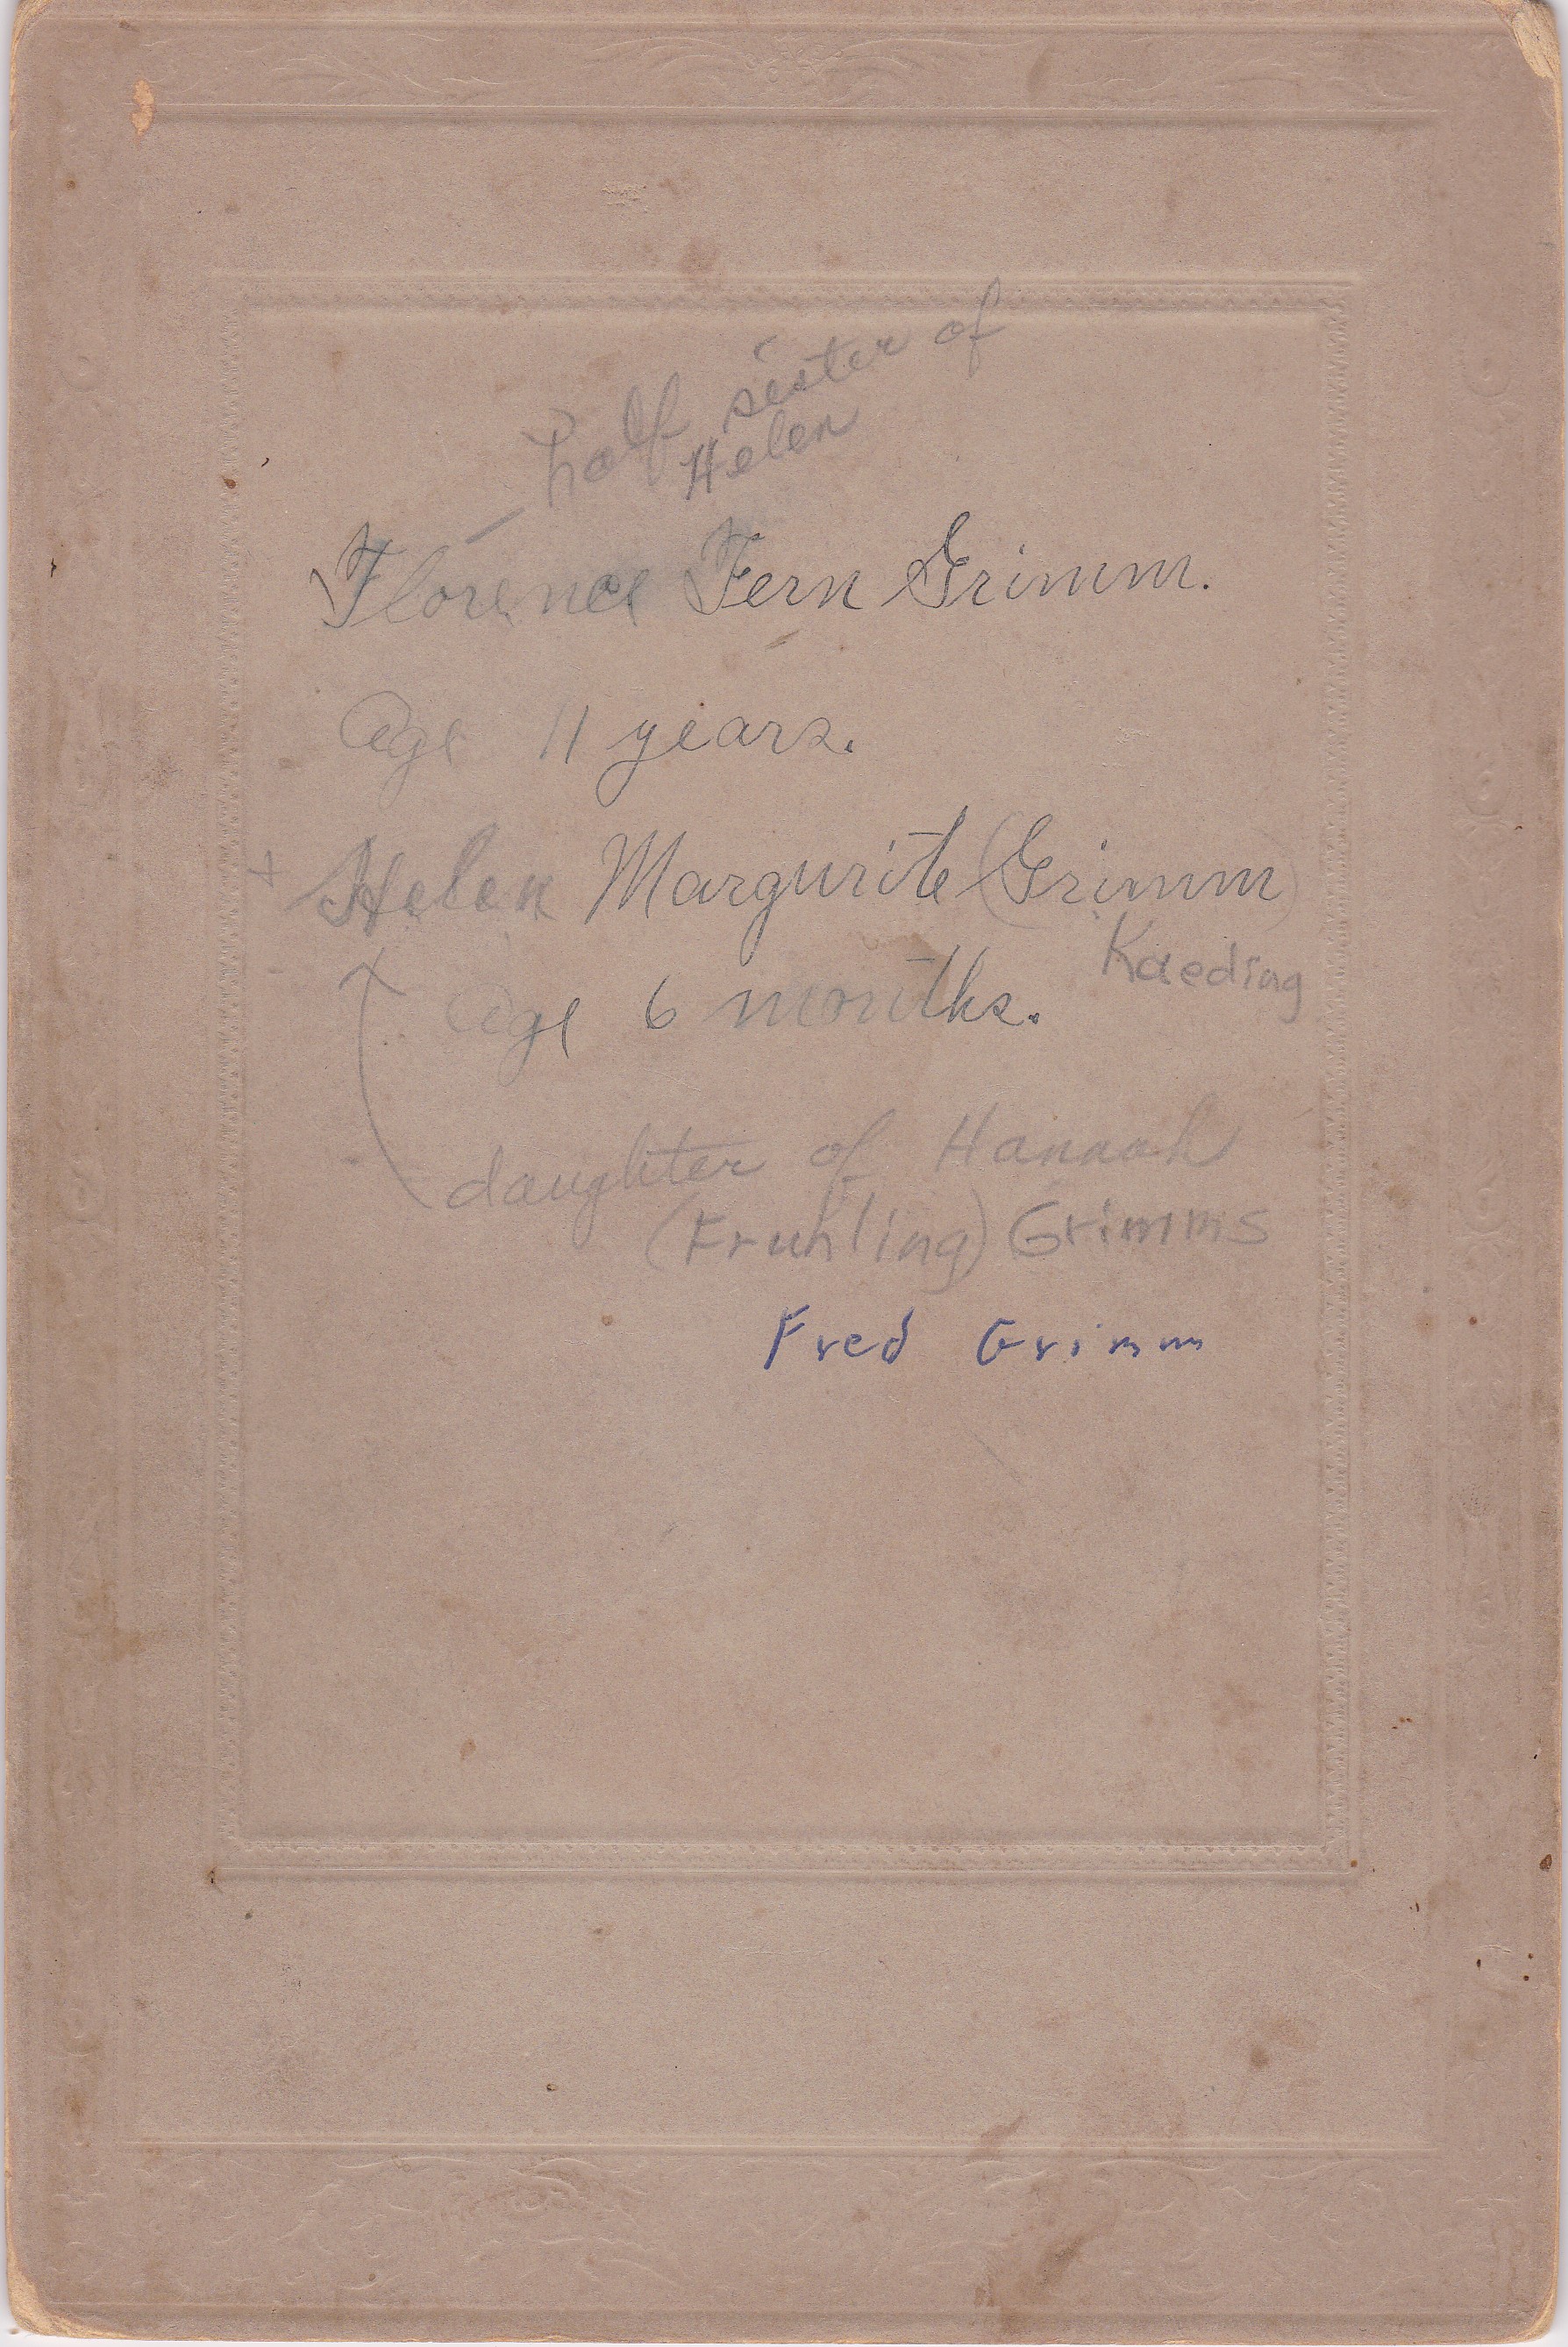 half sister of
Helen
Florence Fern Grimm.
Age 11 years.
+ Helen Margurite (Grimm)
Kaeding
Age 6 months.
daughter of Hannah
(Fruhling) Grimms
Fred Grimm